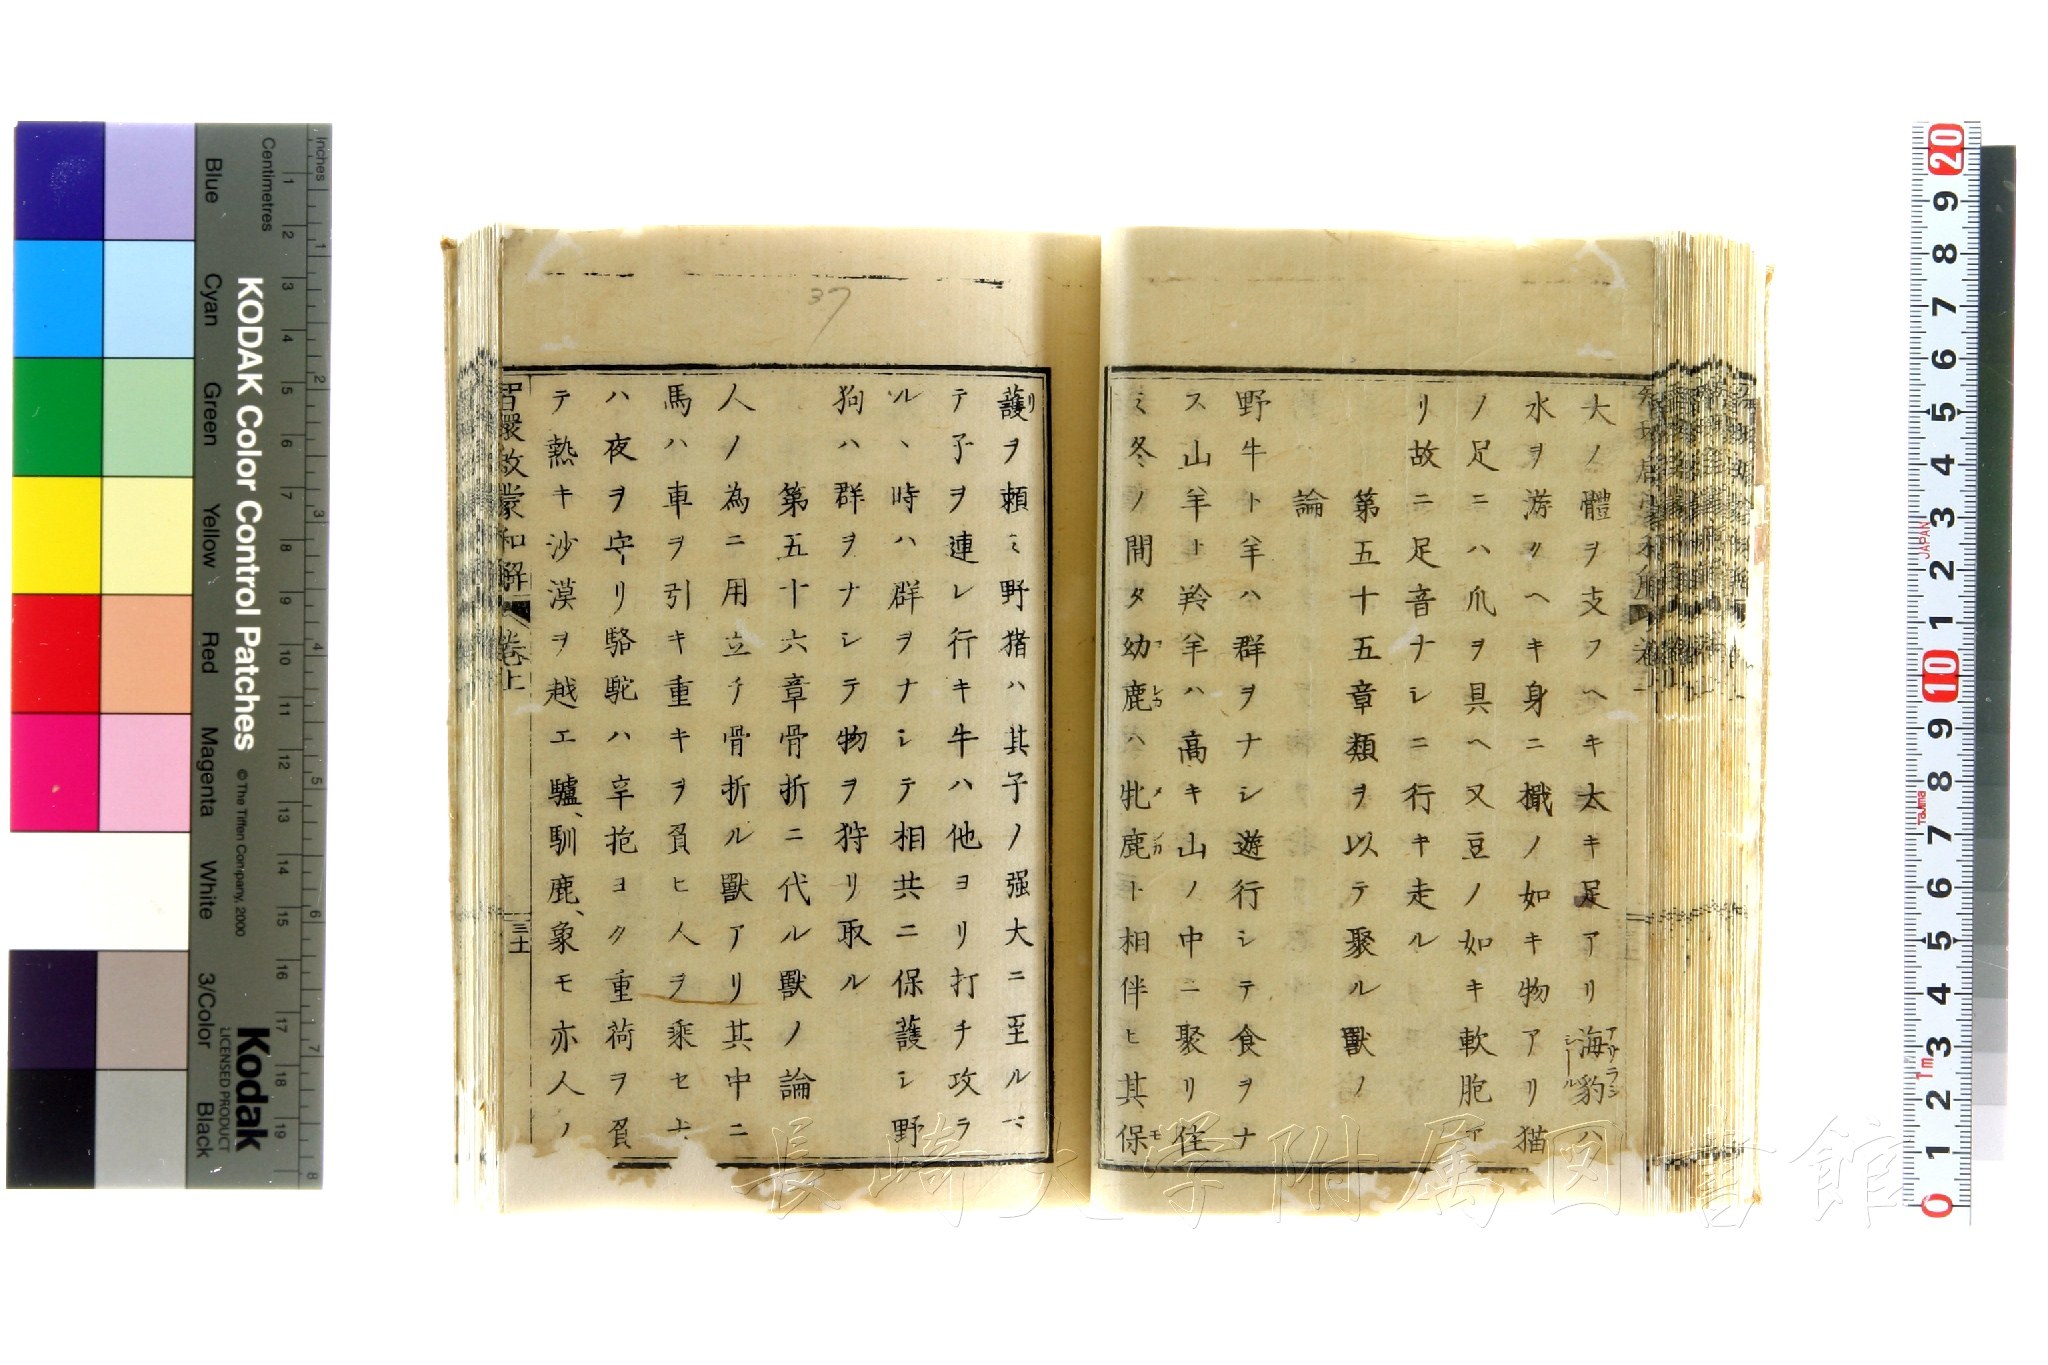 大ノ體ヲ支フヘキ太キ足アリ海豹ハ
アザラシ
シール
水ヲ游クヘキ身ニ檝ノ如キ物アリ猫
ノ足ニハ爪ヲ具ヘ又豆ノ如キ軟胞ア
リ故ニ足音ナシニ行キ走ル
第五十五章類ヲ以テ聚ル獸ノ
論
野牛ト羊ハ群ヲナシ遊行シテ食ヲナ
ス山羊ト羚羊ハ高キ山ノ中ニ聚リ住
ミ冬ノ間タ幼鹿ハ牝鹿ト相伴ヒ其保
護ヲ頼ミ野猪ハ其子ノ强大ニ至ルマ
テ子ヲ連レ行キ牛ハ他ヨリ打チ攻ラ
ルヽ時ハ群ヲナシテ相共ニ保護シ野
狗ハ群ヲナシテ物ヲ狩リ取ル
第五十六章骨折ニ代ル獸ノ論
人ノ為ニ用立チ骨折ル獸アリ其中ニ
馬ハ車ヲ引キ重キヲ負ヒ人ヲ乘セ犬
ハ夜ヲ守リ駱駝ハ辛抱ヨク重荷ヲ負
テ熱キ沙漠ヲ越エ驢、馴鹿、象モ亦人ノ
智環啟蒙和解 卷上
三十
37
長崎大学附属図書館
KODAK Color Control Patches
© The Tiffen Company, 2000
Kodak
LICENSED PRODUCT
Inches
Centimetres
Blue
Cyan
Green
Yellow
Red
Magenta
White
3/Color
Black
1 2 3 4 5 6 7 8 9 10 11 12 13 14 15 16 17 18 19
1 2 3 4 5 6 7 8
20 9 8 7 6 5 4 3 2 1 10 9 8 7 6 5 4 3 2 1 0
JAPAN
Tajima
1m